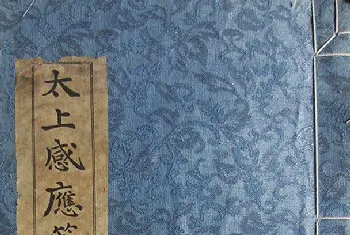 太上感應